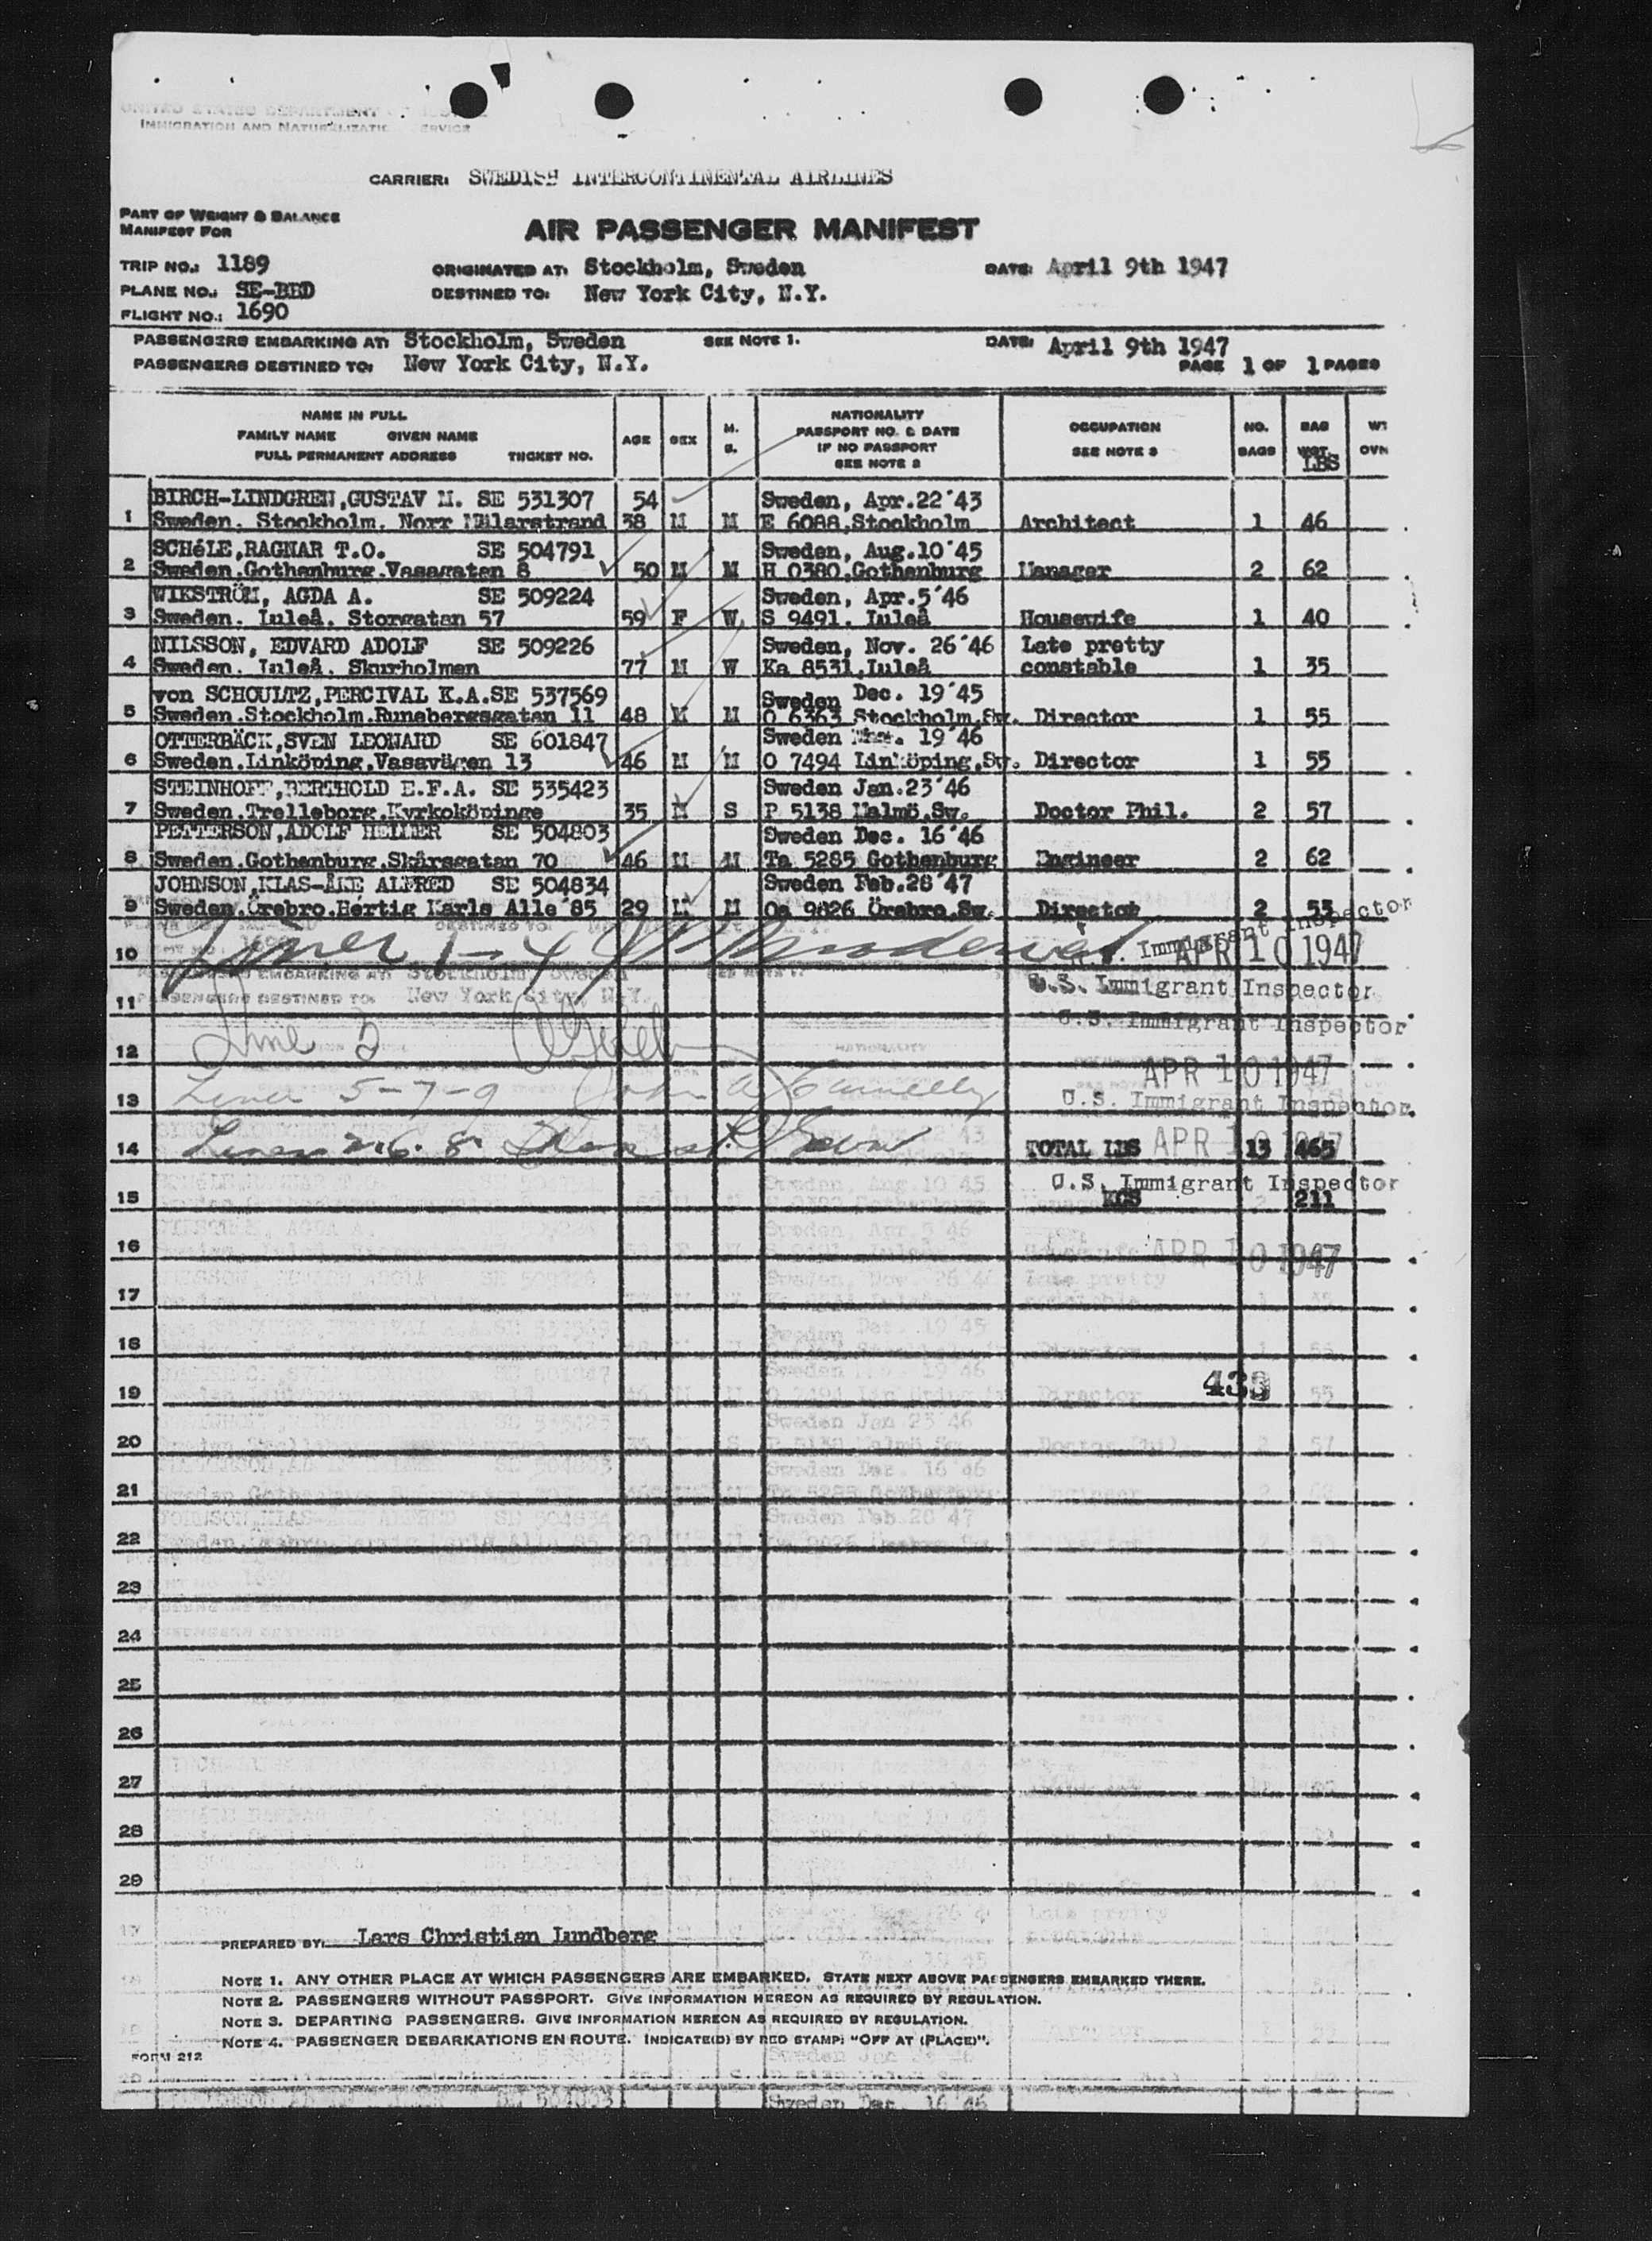 UNITED STATES DEPARTMENT
IMMIGRATION AND NATURALIZATION SERVICE
CARRIER: SWEDISH INTERCONTINENTAL AIRLINES
PART OF WEIGHT & BALANCE
MANIFEST FOR
AIR PASSENGER MANIFEST
TRIP NO.: 1189 ORIGINATED AT: Stockholm, Sweden DATE: April 9th 1947
PLANE NO.: SE-BBD DESTINED TO: New York City, N.Y.
FLIGHT NO.: 1690
PASSENGERS EMBARKING AT: Stockholm, Sweden SEE NOTE 1. DATE: April 9th 1947
PASSENGERS DESTINED TO: New York City, N.Y. PAGE 1 OF 1 PAGES
NAME IN FULL
FAMILY NAME GIVEN NAME
FULL PERMANENT ADDRESS TICKET NO.
AGE SEX M. S.
NATIONALITY
PASSPORT NO. & DATE
IF NO PASSPORT
SEE NOTE 2
OCCUPATION
SEE NOTE 3
NO. BAGS
BAG WGT. LBS
BIRCH-LINDGREN,GUSTAV M. SE 531307 54 Sweden, Apr.22'43
1 Sweden. Stockholm. Norr Mälarstrand 38 M M E 6088.Stockholm Architect 1 46
SCHéLE,RAGNAR T.O. SE 504791 Sweden, Aug.10'45
2 Sweden.Gothenburg.Vasagatan 8 50 M M H 0380.Gothenburg Manager 2 62
WIKSTRÖM, AGDA A. SE 509224 Sweden, Apr.5'46
3 Sweden. Luleå. Storgatan 57 59 F W. S 9491. Luleå Housewife 1 40
NILSSON, EDVARD ADOLF SE 509226 Sweden, Nov. 26'46 Late pretty
4 Sweden. Luleå. Skurholmen 77 M W Ka 8531.Luleå constable 1 35
von SCHOULTZ,PERCIVAL K.A.SE 537569 Sweden Dec. 19'45
5 Sweden.Stockholm.Runebergsgatan 11 48 M M O 6363 Stockholm.Sw. Director 1 55
OTTERBÄCK,SVEN LEONARD SE 601847 Sweden 19'46
6 Sweden.Linköping,Vasavägen 13 46 M M O 7494 Linköping,Sw. Director 1 55
STEINHOFF,BERTHOLD E.F.A. SE 535423 Sweden Jan.23'46
7 Sweden.Trelleborg.Kyrkoköpinge 35 M S P 5138 Malmö.Sw. Doctor Phil. 2 57
PETTERSON,ADOLF HELMER SE 504803 Sweden Dec. 16'46
8 Sweden.Gothenburg.Skårsgatan 70 46 M M Ta 5285 Gothenburg Engineer 2 62
JOHNSON,KLAS-ÅKE ALFRED SE 504834 Sweden Feb.28'47
9 Sweden.Örebro.Hertig Karls Alle'85 29 M M Oa 9826 Örebro.Sw. Director 2 53
10 Lines 1-4 U.S. Immigrant Inspector
APR 10 1947
11 U.S. Immigrant Inspector
U.S. Immigrant Inspector
12 Line 3
APR 10 1947
13 Lines 5-7-9 John A. U.S. Immigrant Inspector.
14 Lines 2.6.8. TOTAL LBS APR 10 1947 13 465
U.S. Immigrant Inspector
15 KGS 211
16 APR 10 1947
17
18
19 433
20
21
22
23
24
25
26
27
28
29
PREPARED BY: Lars Christian Lundberg
NOTE 1. ANY OTHER PLACE AT WHICH PASSENGERS ARE EMBARKED. STATE NEXT ABOVE PASSENGERS EMBARKED THERE.
NOTE 2. PASSENGERS WITHOUT PASSPORT. GIVE INFORMATION HEREON AS REQUIRED BY REGULATION.
NOTE 3. DEPARTING PASSENGERS. GIVE INFORMATION HEREON AS REQUIRED BY REGULATION.
NOTE 4. PASSENGER DEBARKATIONS EN ROUTE. INDICATE(D) BY RED STAMP: "OFF AT (PLACE)".
FORM 212